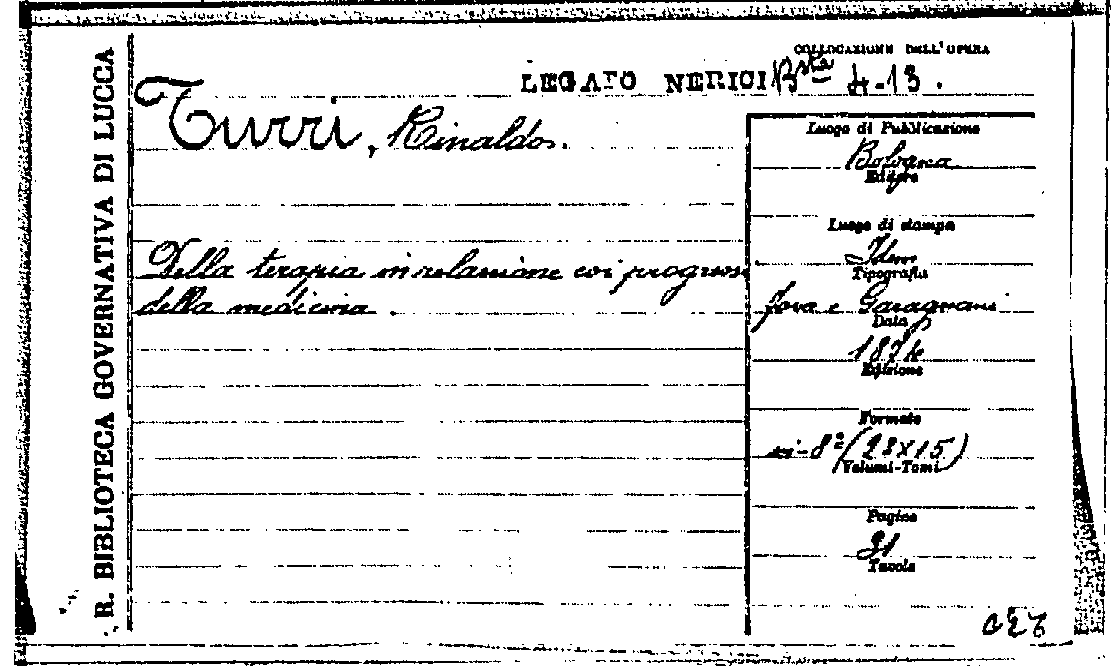 R. BIBLIOTECA GOVERNATIVA DI LUCCA
COLLOCAZIONE DELL'OPERA
LEGATO NERICI Bsta 4-13.
Turri, Rinaldo.
Della terapia in relazione coi progressi
della medicina.
Luogo di Pubblicazione
Bologna
Editore
Luogo di stampa
Idem
Tipografia
Fava e Garagnani
Data
1874
Edizione
Formato
in-8º (23x15)
Volumi-Tomi
Pagine
31
Tavole